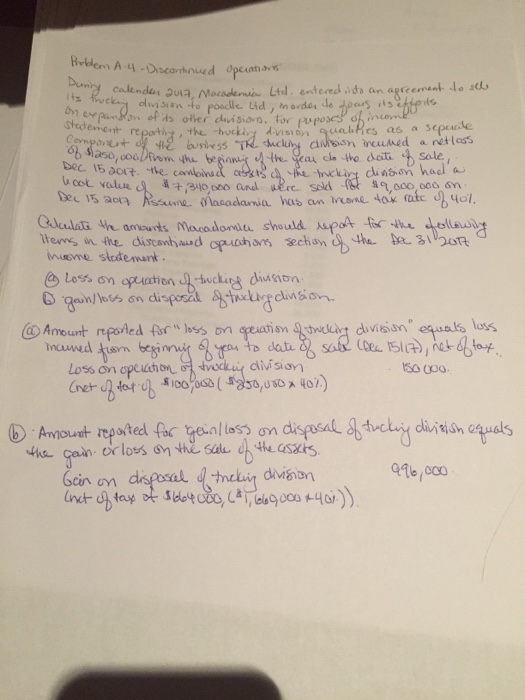 Problem A-4 - Discontinued Operations
During calendar 2017, Macademia Ltd. entered into an agreement to sell
its trucking division to poodle Ltd, in order to focus its efforts
on expansion of its other divisions. For puposes of income
statement reporting, the trucking division qualifies as a seperate
component of the business The trucking division incurred a net loss
of $250,000 from the beginning of the year to the date of sale,
Dec 15 2017. the combined assets of the trucking division had a
book value of $7,340,000 and were sold for $9,000,000 on
Dec 15 2017 Assume Macadamia has an income tax rate of 40%.
Calculate the amounts Macadamia should report for the following
items in the discontinued operations section of the Dec 31 2017
income statement.
(a) Loss on operation of trucking division.
(b) gain/loss on disposal of trucking division.
(a) Amount reported for "loss on operation of trucking division" equals loss
incurred from beginning of year to date of sale (Dec 15/17), net of tax.
Loss on operation of trucking division 150 000.
(net of tax of $100,000 ($250,000 x 40%)
(b) Amount reported for gain/loss on disposal of trucking division equals
the gain or loss on the sale of the assets.
Gain on disposal of trucking division 996,000.
(net of tax of $664 000, ($1,660,000 x 40%)).